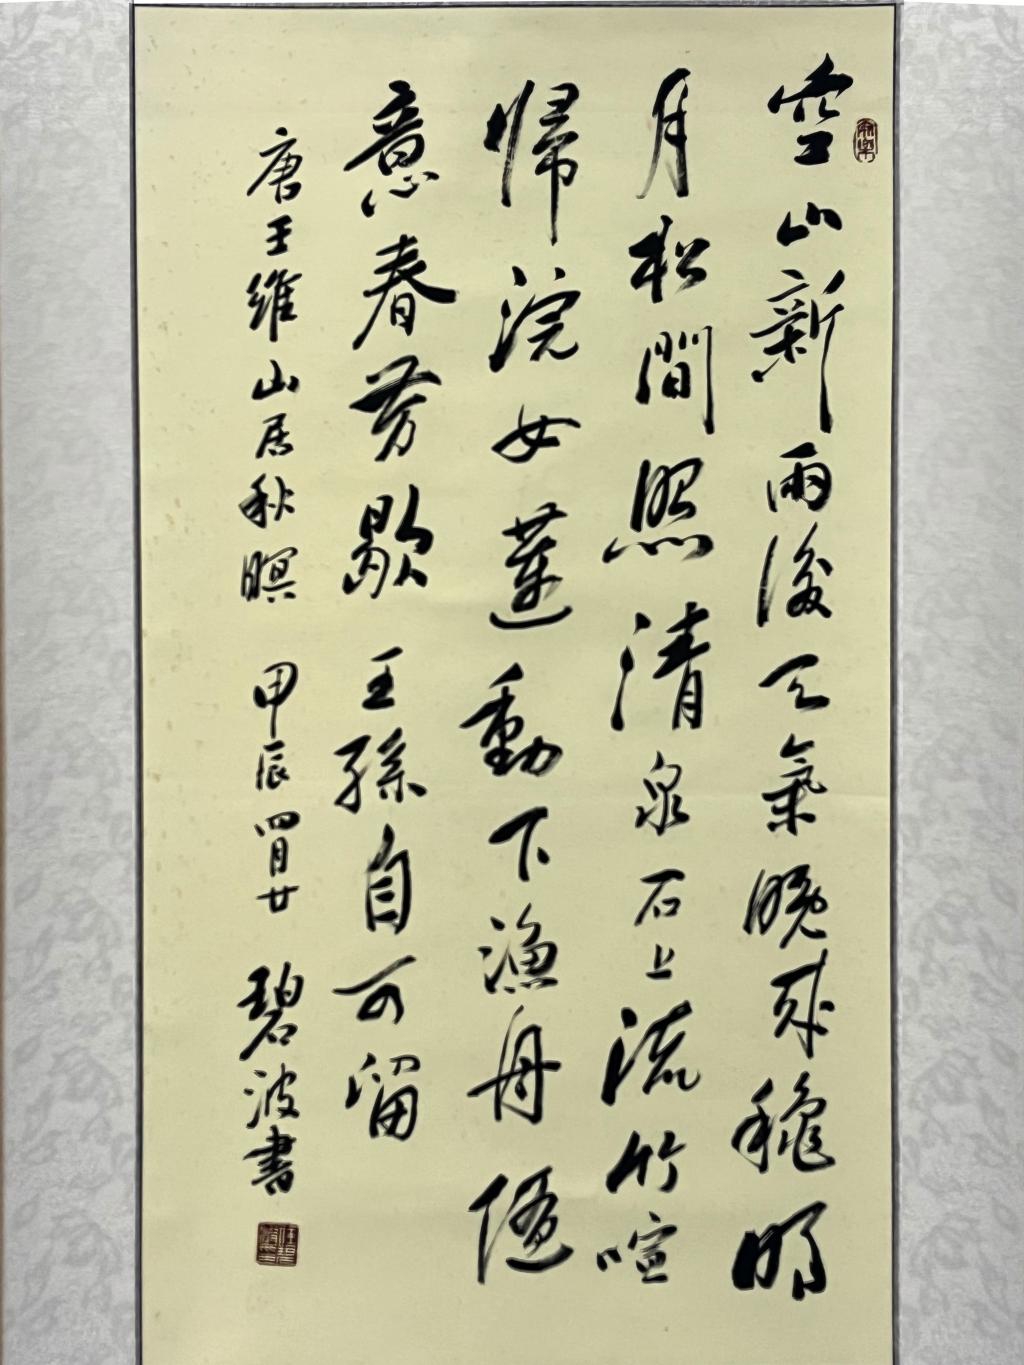 空山新雨後天氣晚來穐明
月松間照清泉石上流竹喧
帰浣女蓮動下漁舟隨
意春芳歇王孫自可留
唐王維山居秋暝 甲辰四月廿 碧波書